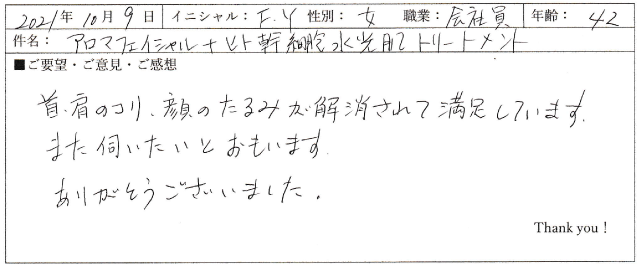 2021年10月9日 イニシャル：F.Y 性別：女 職業：会社員 年齢：42
件名：アロマフェイシャル＋ヒト幹細胞水光肌トリートメント
■ご要望・ご意見・ご感想
首、肩のコリ、顔のたるみが解消されて満足しています。
また伺いたいとおもいます。
ありがとうございました。
Thank you！